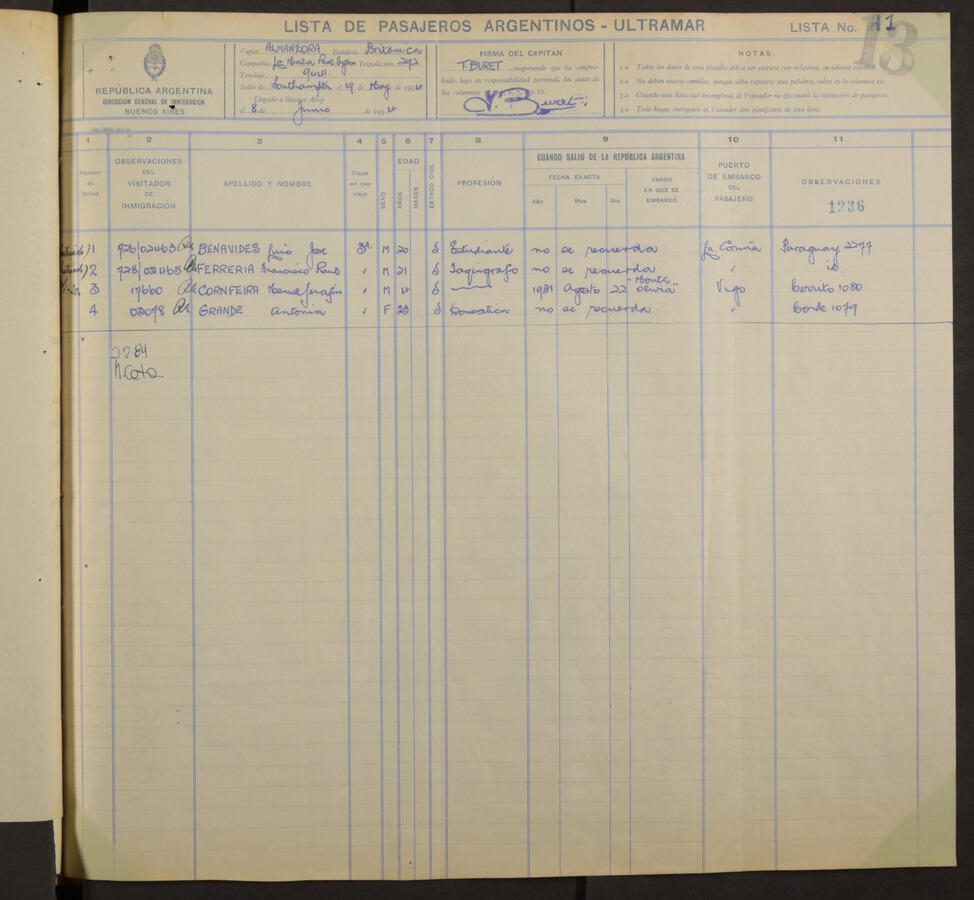 LISTA DE PASAJEROS ARGENTINOS - ULTRAMAR
LISTA No. A1
13
REPÚBLICA ARGENTINA
DIRECCION GENERAL DE INMIGRACIÓN
BUENOS AIRES
Vapor ALMANZORA Bandera Britanica
Compañia La Mala Real Tripulación
Tonelaje
Salió de Southampton el 19 de May de 1934
Llegado a Buenos Aires
el 8 de Junio de 1934
FIRMA DEL CAPITÁN
T BURET asegurando que ha compro-
bado, bajo su responsabilidad personal, los datos de
las columnas 10.
T. Buret
NOTAS:
1.a Todos los datos de esta planilla deben ser escritos con máquina, en idioma español.
2.a No deben usarse comillas, aunque deba repetirse una palabra, salvo en la columna 10.
3.a Cuando una lista esté incompleta, el Visitador no efectuará la revisación de pasajeros.
4.a Todo buque entregará al Visitador dos ejemplares de esta lista.
1 2 3 4 5 6 7 8 9 10 11
Número de Orden
OBSERVACIONES DEL VISITADOR DE INMIGRACIÓN
APELLIDO Y NOMBRE
Clase en que viaja
SEXO
EDAD
AÑOS
MESES
ESTADO CIVIL
PROFESIÓN
CUANDO SALIÓ DE LA REPÚBLICA ARGENTINA
FECHA EXACTA
Año Mes Dia
VAPOR EN QUE SE EMBARCÓ
PUERTO DE EMBARCO DEL PASAJERO
OBSERVACIONES
1236
1 BENAVIDES Luis Jose 3a. M 20 S Estudiante no se recuerda La Coruña Paraguay 2277
2 FERRERIA Francisco Raul " M 21 S Taquigrafo no se recuerda " id.
3 17660 CORNFEIRA Manuel Serafin " M 14 S 1931 Agosto 22 "Monte Olivia" Vigo Cerrito 1080
4 02078 GRANDE Antonia " F 28 S Domestica no se recuerda " Conde 1079